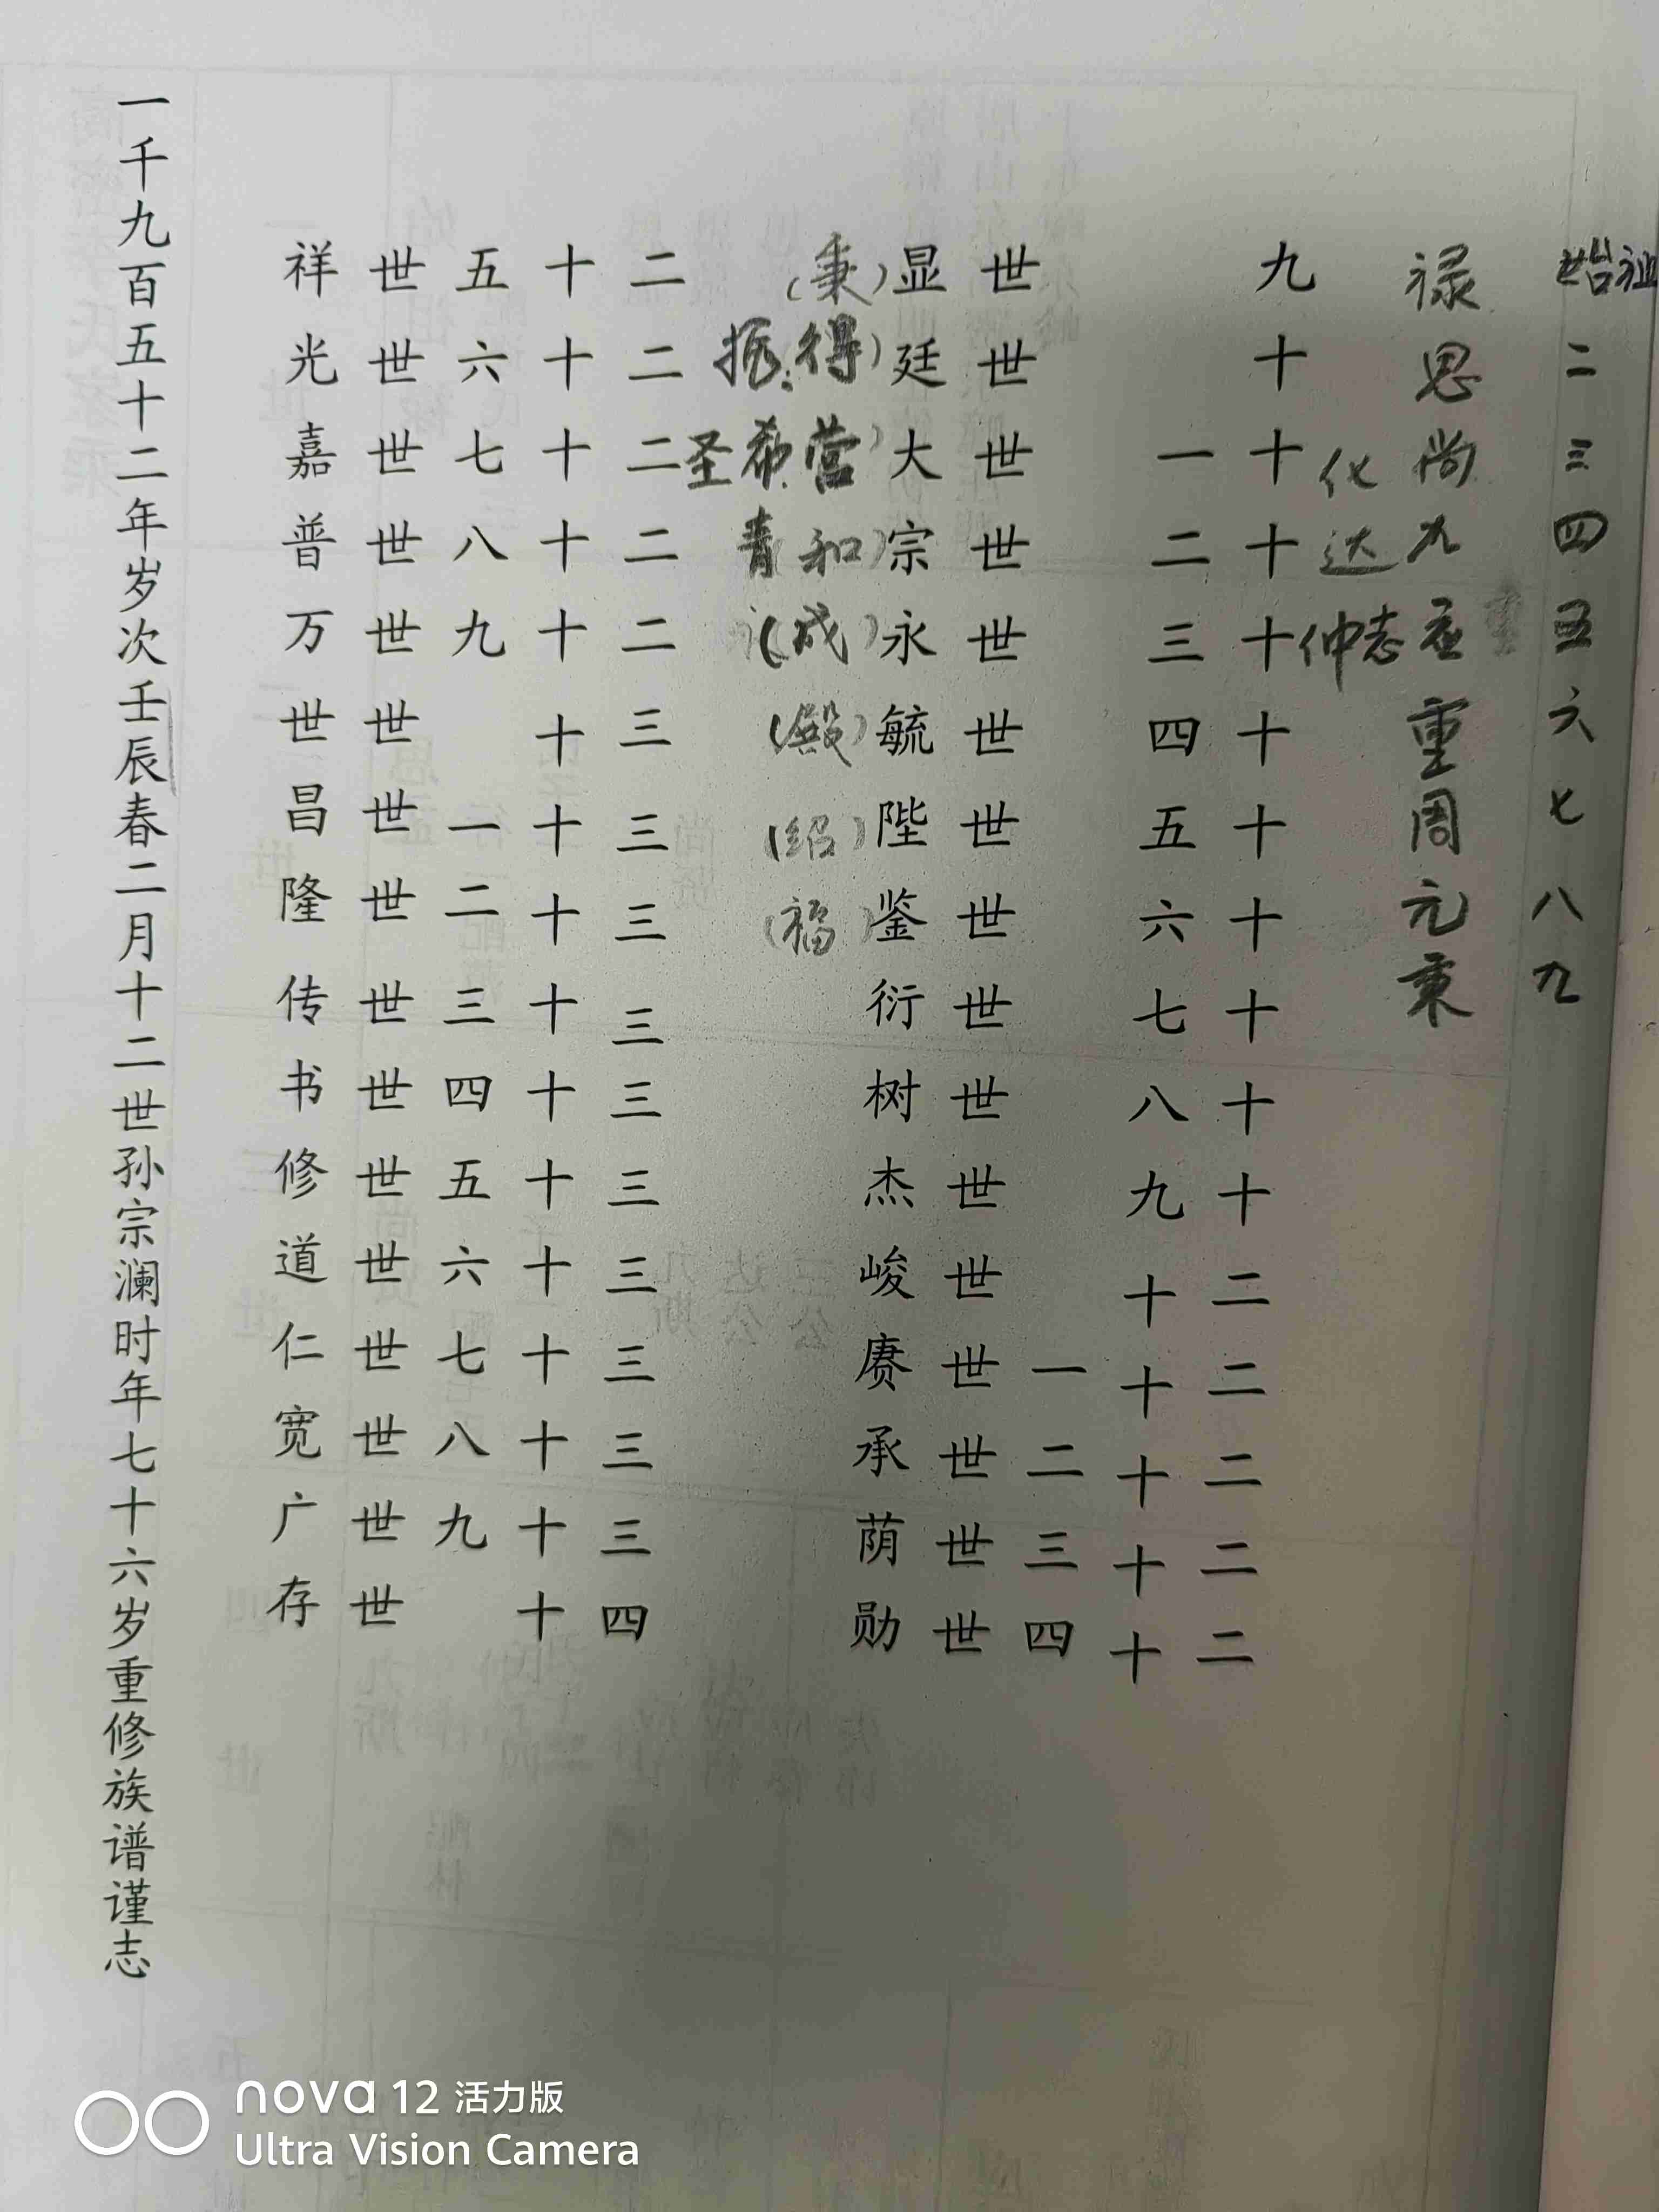 始祖二三四五六七八九
禄思尚九应重周元秉
化达仲志
九十十十十十十十十十十二二二二二
一二三四五六七八九十十十十十
一二三四
世世世世世世世世世世世世世世世世
显廷大宗永毓陛鉴衍树杰峻赓承荫勋
(秉)得)营)和)(成)(殿)(绍)(福)
振希青
圣
二二二二二三三三三三三三三三三四
十十十十十十十十十十十十十十十十
五六七八九一二三四五六七八九
世世世世世世世世世世世世世世世世
祥光嘉普万世昌隆传书修道仁宽广存
一千九百五十二年岁次壬辰春二月十二世孙宗澜时年七十六岁重修族谱谨志
nova 12 活力版
Ultra Vision Camera